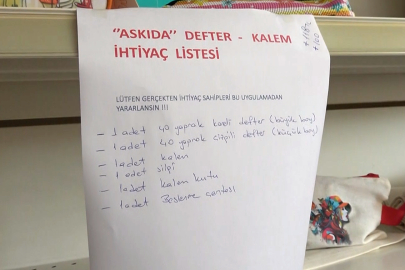 "ASKIDA" DEFTER - KALEM
İHTİYAÇ LİSTESİ
LÜTFEN GERÇEKTEN İHTİYAÇ SAHİPLERİ BU UYGULAMADAN
YARARLANSIN.!!!
- 1 adet 40 yaprak kareli defter (büyük boy)
- 1 adet 40 yaprak çizgili defter (küçük boy)
- 1 adet kalem
- 1 adet silgi
- 1 adet kalem kutu
- 1 adet Beslenme çantası